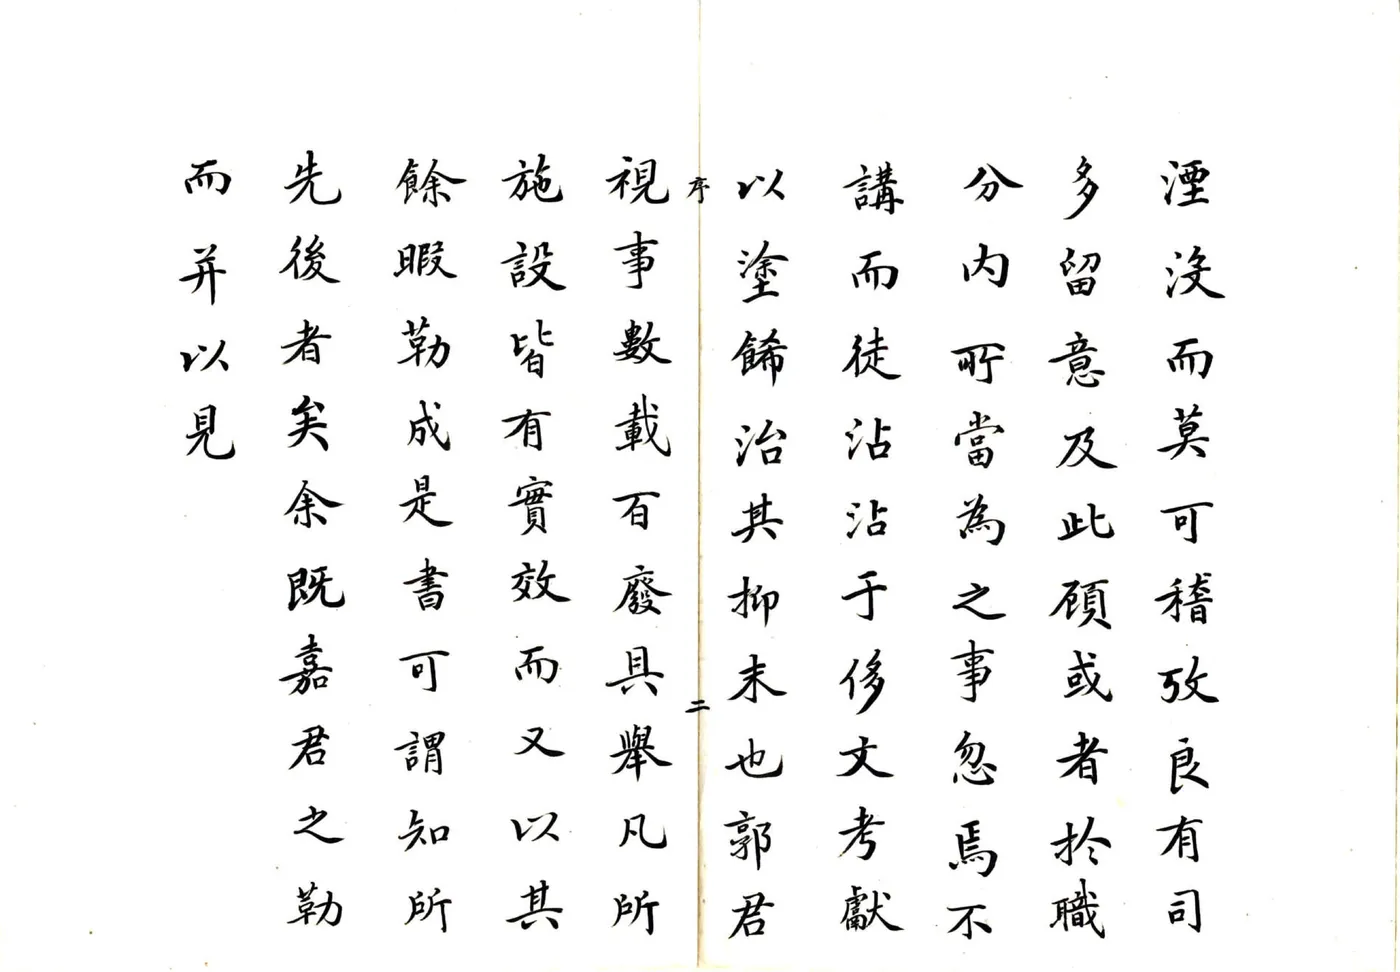 湮沒而莫可稽攷良有司
多留意及此顧或者於職
分内所當為之事忽焉不
講而徒沾沾于侈文考獻
以塗餙治其抑末也郭君
序 二
視事數載百廢具舉凡所
施設皆有實效而又以其
餘暇勒成是書可謂知所
先後者矣余既嘉君之勒
而并以見